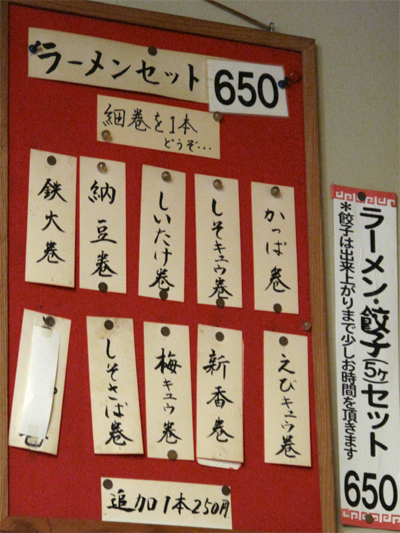 ラーメンセット 650
細巻を1本
どうぞ…
かっぱ巻
しそキュウ巻
しいたけ巻
納豆巻
鉄火巻
えびキュウ巻
新香巻
梅キュウ巻
しそさば巻
追加1本250円
ラーメン・餃子(5ヶ)セット
*餃子は出来上がりまで少しお時間を頂きます
650